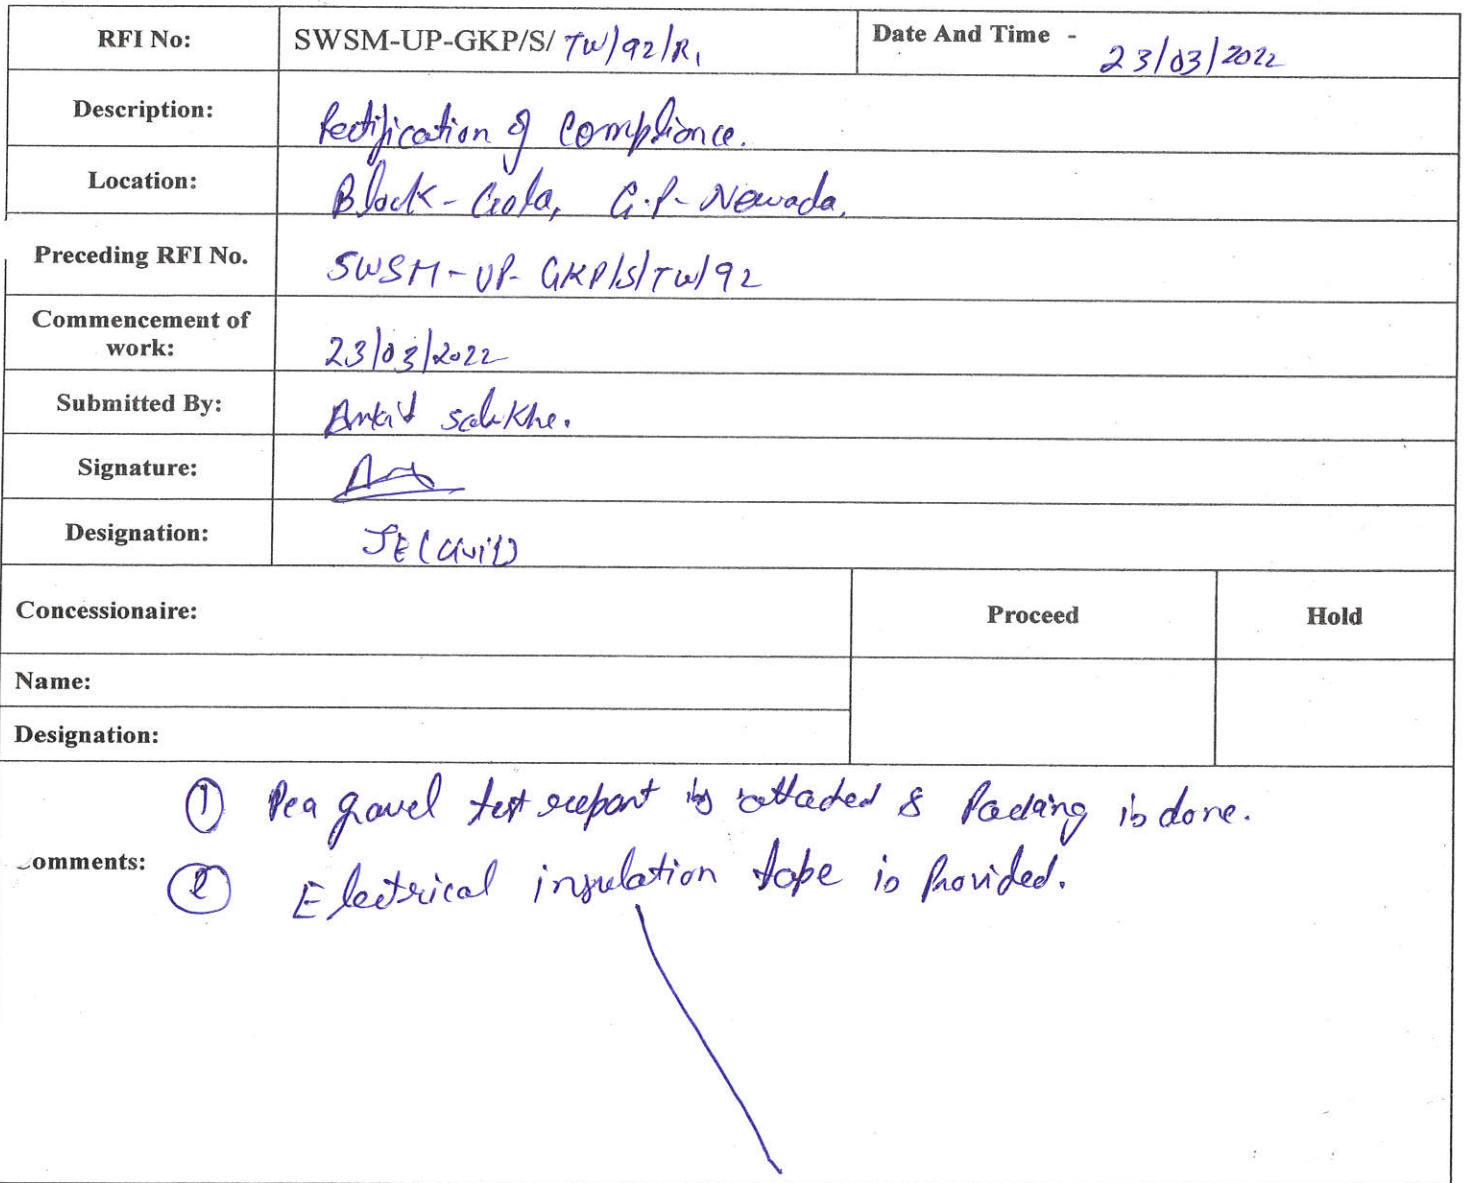 RFI No: SWSM-UP-GKP/S/ TW/92/R1 Date And Time - 23/03/2022
Description: Rectification of Compliance.
Location: Block - Gola, G.P- Newada,
Preceding RFI No. SWSM-UP-GKP/S/TW/92
Commencement of
work: 23/03/2022
Submitted By: Ankit
Signature:
Designation: JE (Civil)
Concessionaire: Proceed Hold
Name:
Designation:
① Pea gravel test report is attached & Packing is done.
omments: ② Electrical insulation tape is Provided.